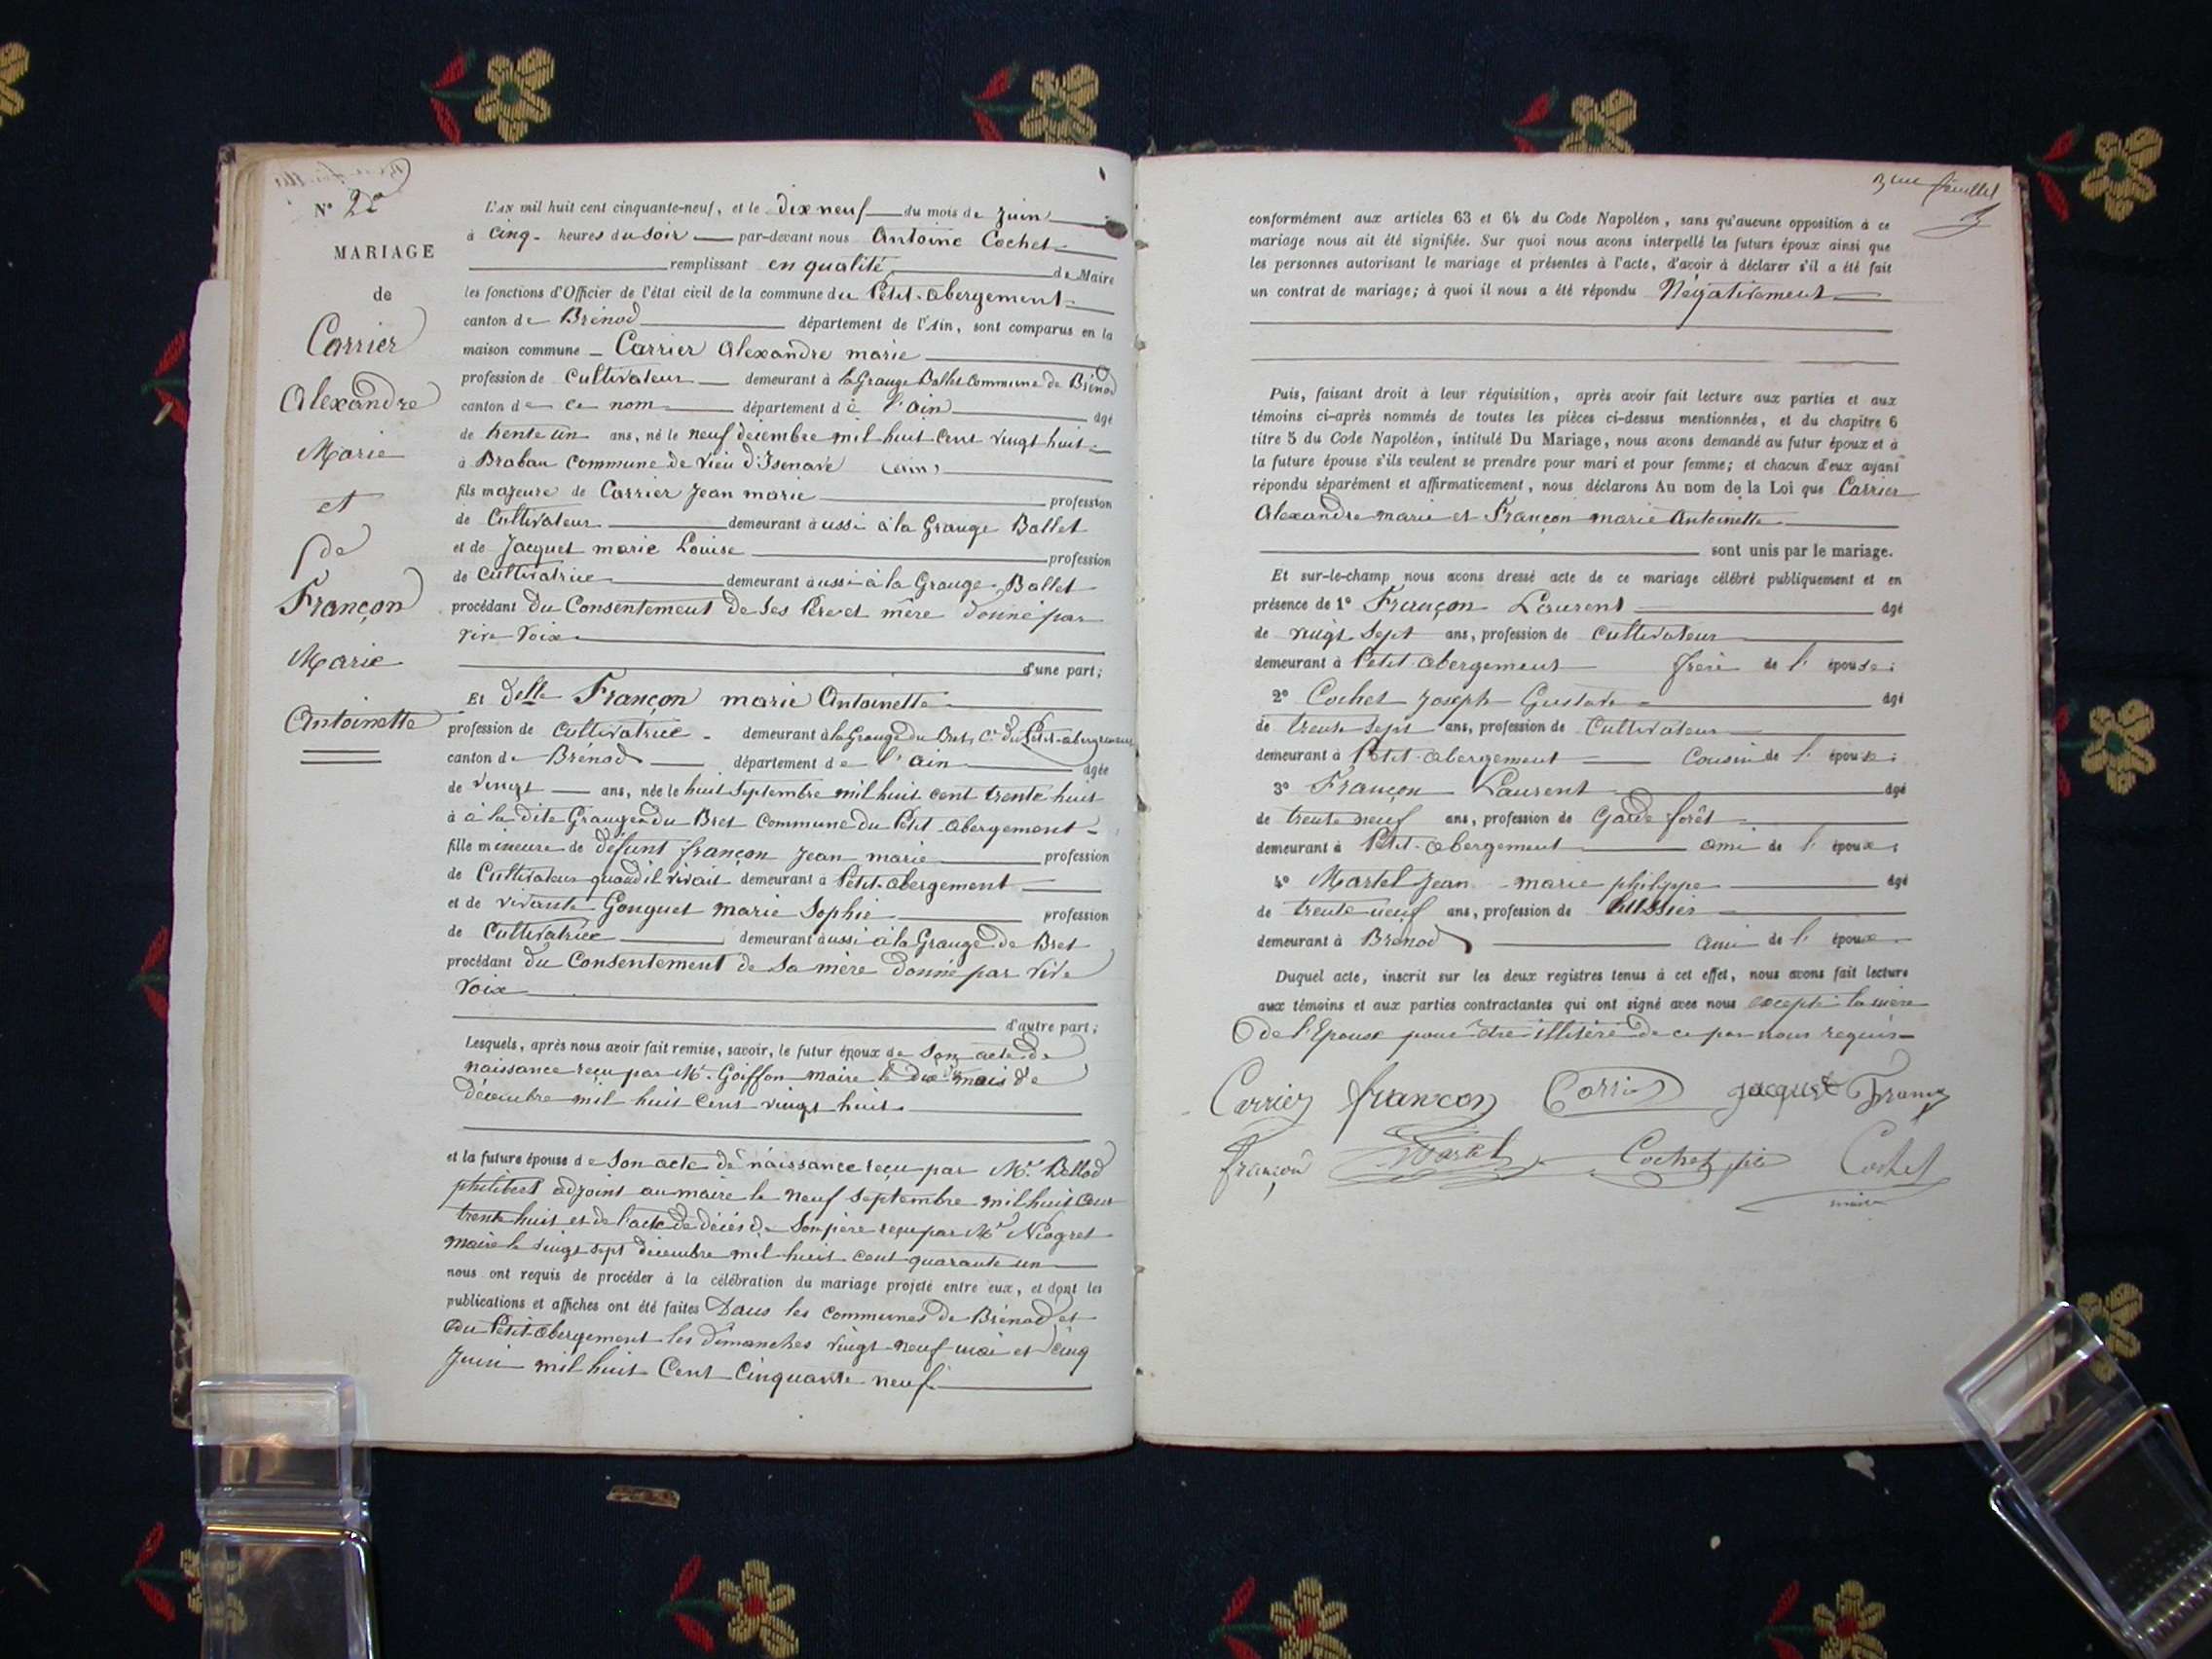 N° 2e
MARIAGE
de
Carrier
Alexandre
Marie
et
de
Françon
Marie
Antoinette
L'AN mil huit cent cinquante-neuf, et le dix neuf du mois de juin
à cinq heures du soir par-devant nous Antoine Cochet
remplissant en qualité de Maire
les fonctions d'Officier de l'état civil de la commune du Petit-abergement
canton de Brénod département de l'Ain, sont comparus en la
maison commune Carrier Alexandre marie
profession de cultivateur demeurant à la Grange Ballet Commune de Brénod
canton de ce nom département de l'ain âgé
de trente un ans, né le neuf décembre mil huit cent vingt huit
à Braban Commune de vieu d'Isenave (ain)
fils majeure de Carrier Jean marie profession
de Cultivateur demeurant aussi à la Grange Ballet
et de Jacquet marie Louise profession
de cultivatrice demeurant aussi à la Grange Ballet
procédant du Consentement de ses Père et mère donné par
vive voix
d'une part;
Et delle Françon marie Antoinette
profession de cultivatrice demeurant à la Grange du Bret, Cne du Petit-abergement
canton de Brénod département de l'ain âgée
de vingt ans, née le huit Septembre mil huit cent trente huit
à à la dite Grange du Bret Commune du Petit abergement
fille mineure de défunt françon Jean marie profession
de Cultivateur quand il vivait demeurant à Petit-abergement
et de vivante Gonguet marie Sophie profession
de Cultivatrice demeurant aussi à la Grange de Bret
procédant du Consentement de sa mère donné par vive
voix
d'autre part;
Lesquels, après nous avoir fait remise, savoir, le futur époux de son acte de
naissance reçu par Mr. Goiffon maire le dix mois de
décembre mil huit cent vingt huit
et la future épouse de son acte de naissance reçu par Mr. Ballod
philibert adjoint au maire le neuf septembre mil huit cent
trente huit et de l'acte de décès de son père reçu par Mr Niogret
maire le vingt sept décembre mil huit cent quarante un
nous ont requis de procéder à la célébration du mariage projeté entre eux, et dont les
publications et affiches ont été faites Dans les communes de Brénod et
du Petit-abergement les dimanches vingt neuf mai et cinq
Juin mil huit Cent Cinquante neuf
3me feuillet
conformément aux articles 63 et 64 du Code Napoléon, sans qu'aucune opposition à ce
mariage nous ait été signifiée. Sur quoi nous avons interpellé les futurs époux ainsi que
les personnes autorisant le mariage et présentes à l'acte, d'avoir à déclarer s'il a été fait
un contrat de mariage; à quoi il nous a été répondu Négativement
Puis, faisant droit à leur réquisition, après avoir fait lecture aux parties et aux
témoins ci-après nommés de toutes les pièces ci-dessus mentionnées, et du chapitre 6
titre 5 du Code Napoléon, intitulé Du Mariage, nous avons demandé au futur époux et à
la future épouse s'ils veulent se prendre pour mari et pour femme; et chacun d'eux ayant
répondu séparément et affirmativement, nous déclarons Au nom de la Loi que Carrier
Alexandre marie et Françon marie Antoinette
sont unis par le mariage.
Et sur-le-champ nous avons dressé acte de ce mariage célébré publiquement et en
présence de 1° Françon Laurent âgé
de vingt sept ans, profession de cultivateur
demeurant à Petit-abergement frère de l'épouse;
2° Cochet Joseph Gustave âgé
de trente sept ans, profession de Cultivateur
demeurant à Petit-abergement Cousin de l'épouse;
3° Françon Laurent âgé
de trente neuf ans, profession de Garde forêt
demeurant à Petit-abergement ami de l'époux;
4° Martel Jean marie philippe âgé
de trente neuf ans, profession de huissier
demeurant à Brenod ami de l'époux
Duquel acte, inscrit sur les deux registres tenus à cet effet, nous avons fait lecture
aux témoins et aux parties contractantes qui ont signé avec nous excepté la mère
de l'Epouse pour être illitéré de ce par nous requis
Carrier françon Carrier jacquet Françon
françon Martel Cochet Cochet
maire